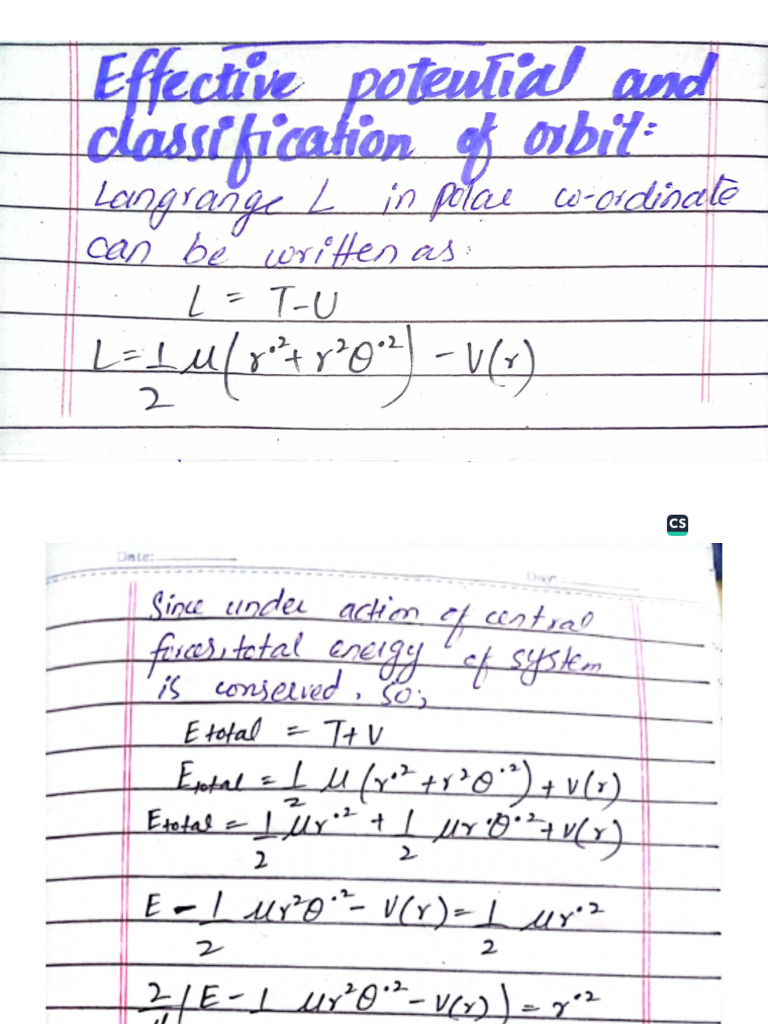 Effective potential and
classification of orbit:
Langrange L in polar co-ordinate
can be written as:
L = T-U
L = 1/2 μ(r˙² + r²θ˙²) - V(r)
CS
Date:
Day:
Since under action of central
forces, total energy of system
is conserved. So;
E total = T+V
E total = 1/2 μ(r˙² + r²θ˙²) + V(r)
E total = 1/2 μr˙² + 1/2 μr˙θ˙² + V(r)
E - 1/2 μr²θ˙² - V(r) = 1/2 μr˙²
2/μ (E - 1 μr²θ˙² - V(r)) = r˙²